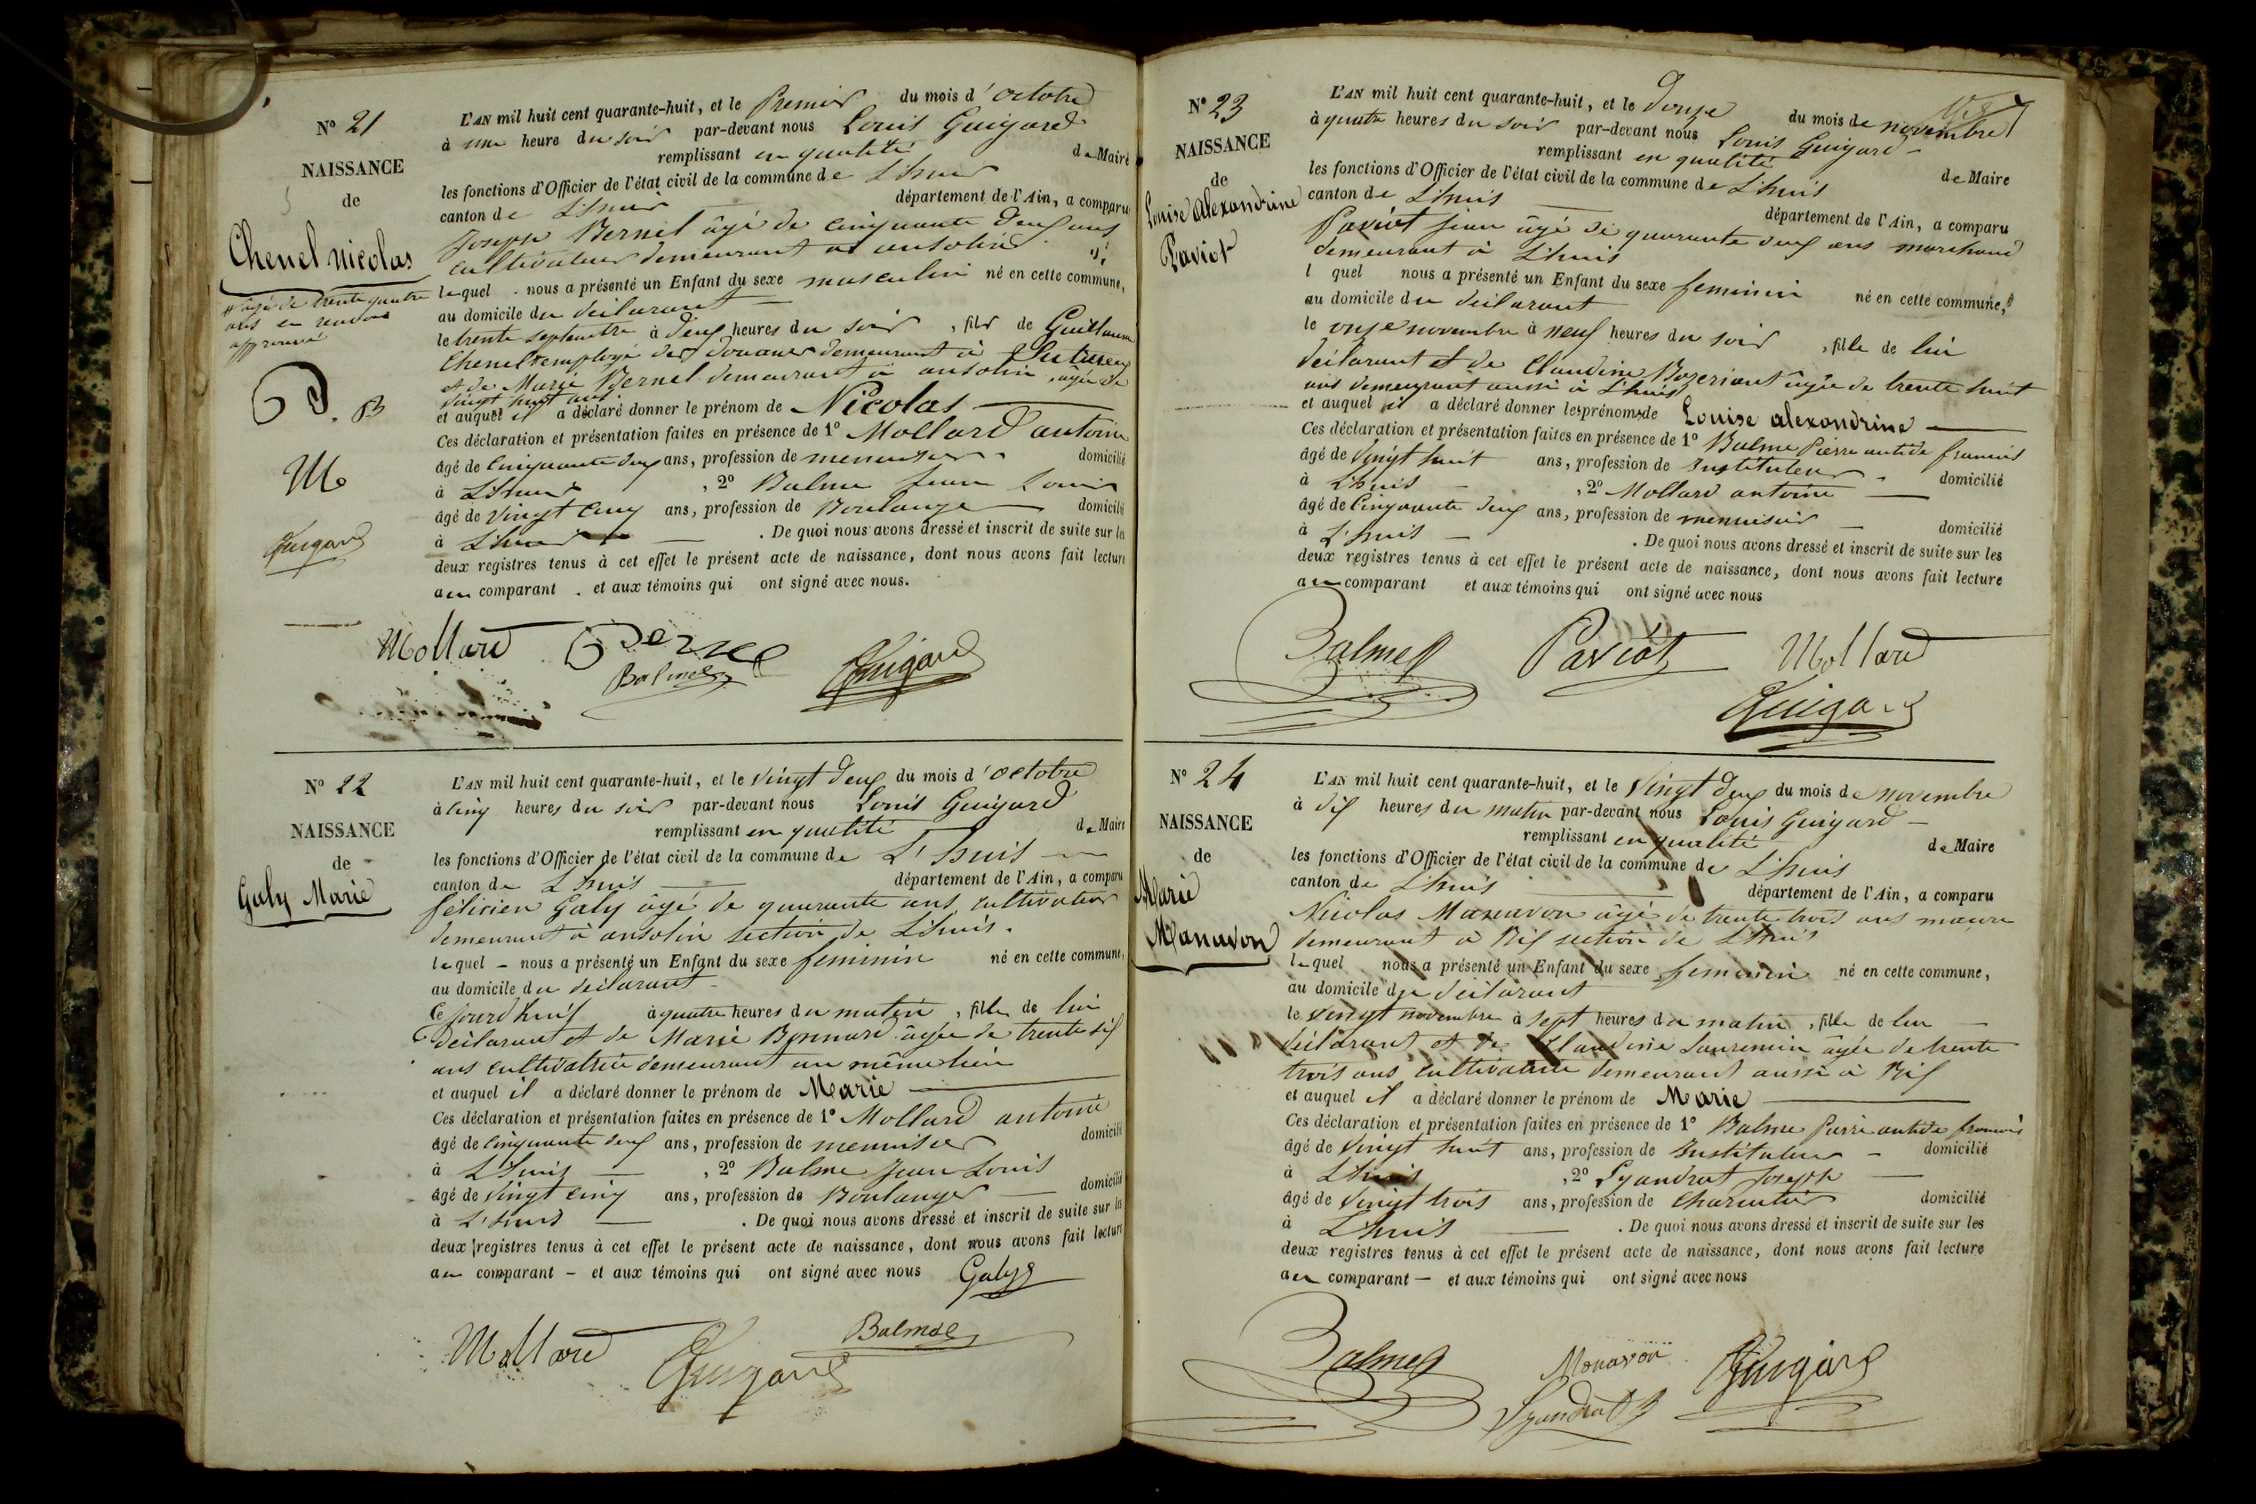 N° 21
NAISSANCE
de
Chenel Nicolas
# âgé de trente quatre
ans en renvoi
approuvé
B
M
Guigard
L'AN mil huit cent quarante-huit, et le Premier du mois d'octobre
à une heure du soir par-devant nous Louis Guigard
remplissant en qualité de Maire
les fonctions d'Officier de l'état civil de la commune de L'huis
canton de L'huis département de l'Ain, a comparu
Joseph Bernel âgé de cinquante deux ans
cultivateur demeurant à ansolin
lequel nous a présenté un Enfant du sexe masculin né en cette commune,
au domicile du déclarant
le trente septembre à deux heures du soir, fils de Guillaume
Chenel # employé des douanes demeurant à
et de Marie Bernel demeurant à ansolin, âgée de
vingt huit ans.
et auquel il a déclaré donner le prénom de Nicolas
Ces déclaration et présentation faites en présence de 1° Mollard antoine
âgé de cinquante deux ans, profession de menuisier domicilié
à L'huis, 2° Balme Jean Louis
âgé de vingt cinq ans, profession de Boulanger domicilié
à L'huis. De quoi nous avons dressé et inscrit de suite sur les
deux registres tenus à cet effet le présent acte de naissance, dont nous avons fait lecture
au comparant et aux témoins qui ont signé avec nous.
Mollard Bernel
Balme Guigard
N° 22
NAISSANCE
de
Galy Marie
L'AN mil huit cent quarante-huit, et le vingt deux du mois d'octobre
à cinq heures du soir par-devant nous Louis Guigard
remplissant en qualité de Maire
les fonctions d'Officier de l'état civil de la commune de L'huis
canton de L'huis département de l'Ain, a comparu
félicien Galy âgé de quarante ans, cultivateur
demeurant à ansolin section de L'huis.
lequel nous a présenté un Enfant du sexe féminin né en cette commune,
au domicile du déclarant
Ce jourd'huy à quatre heures du matin, fille de lui
déclarant et de Marie Bonnard âgée de trente six
ans cultivatrice demeurant au même lieu
et auquel il a déclaré donner le prénom de Marie
Ces déclaration et présentation faites en présence de 1° Mollard antoine
âgé de cinquante deux ans, profession de menuisier domicilié
à L'huis, 2° Balme Jean Louis
âgé de vingt cinq ans, profession de Boulanger domicilié
à L'huis. De quoi nous avons dressé et inscrit de suite sur les
deux registres tenus à cet effet le présent acte de naissance, dont nous avons fait lecture
au comparant et aux témoins qui ont signé avec nous Galy
Mollard Guigard Balme
N° 23
NAISSANCE
de
Louise Alexandrine
Paviot
L'AN mil huit cent quarante-huit, et le Douze du mois de novembre
à quatre heures du soir par-devant nous Louis Guigard
remplissant en qualité de Maire
les fonctions d'Officier de l'état civil de la commune de L'huis
canton de L'huis département de l'Ain, a comparu
Paviot Jean âgé de quarante deux ans marchand
demeurant à L'huis
lquel nous a présenté un Enfant du sexe féminin né en cette commune,
au domicile du déclarant
le onze novembre à neuf heures du soir, fille de lui
déclarant et de Claudine Bozeriant âgée de trente huit
ans demeurant aussi à L'huis
et auquel il a déclaré donner les prénoms de Louise alexandrine
Ces déclaration et présentation faites en présence de 1° Balme Pierre antide françois
âgé de vingt huit ans, profession de Instituteur domicilié
à L'huis, 2° Mollard antoine
âgé de Cinquante deux ans, profession de menuisier domicilié
à L'huis. De quoi nous avons dressé et inscrit de suite sur les
deux registres tenus à cet effet le présent acte de naissance, dont nous avons fait lecture
au comparant et aux témoins qui ont signé avec nous
Balme Paviot Mollard
Guigard
N° 24
NAISSANCE
de
Marie
Manavon
L'AN mil huit cent quarante-huit, et le vingt deux du mois de novembre
à dix heures du matin par-devant nous Louis Guigard
remplissant en qualité de Maire
les fonctions d'Officier de l'état civil de la commune de L'huis
canton de L'huis département de l'Ain, a comparu
Nicolas Manavon âgé de trente trois ans maçon
demeurant à Rix section de L'huis
lequel nous a présenté un Enfant du sexe féminin né en cette commune,
au domicile du déclarant
le vingt novembre à sept heures du matin, fille de lui
déclarant et de Claudine âgée de trente
trois ans cultivatrice demeurant aussi à Rix
et auquel il a déclaré donner le prénom de Marie
Ces déclaration et présentation faites en présence de 1° Balme Pierre antide françois
âgé de vingt huit ans, profession de Instituteur domicilié
à L'huis, 2° Syandrat Joseph
âgé de vingt trois ans, profession de charcutier domicilié
à L'huis. De quoi nous avons dressé et inscrit de suite sur les
deux registres tenus à cet effet le présent acte de naissance, dont nous avons fait lecture
au comparant et aux témoins qui ont signé avec nous
Balme Monavon Guigard
Syandrat